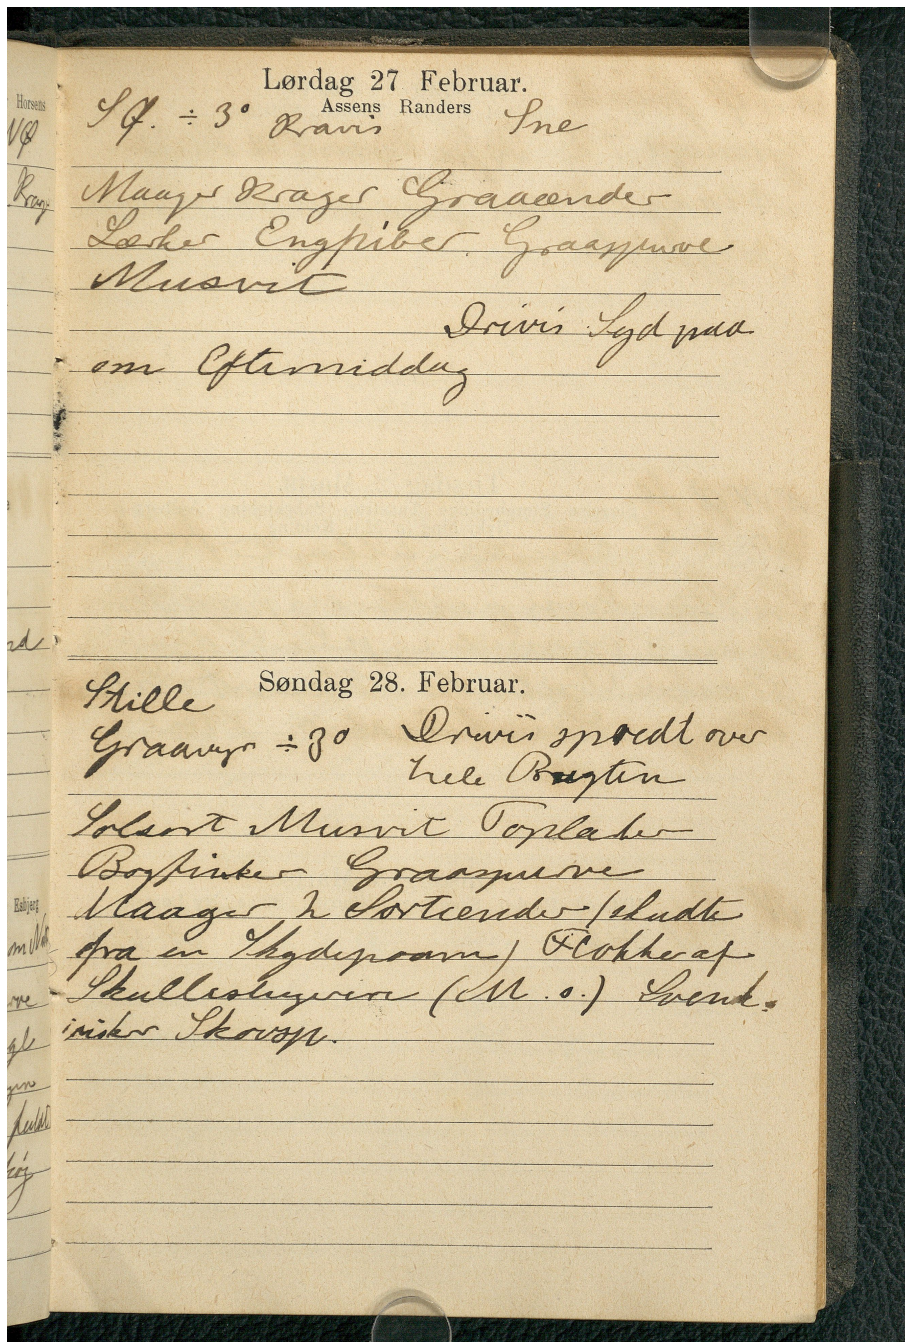 Horsens
NØ
Krag
Esbjerg
Lørdag 27 Februar.
Assens Randers
SØ. ÷ 3° Kravis Sne
Maager Krager Graaænder
Lærker Engpiber Graaspurve
Musvit
Drivis Syd paa
om Eftermiddag
Søndag 28. Februar.
Stille
Graavejr ÷ 3° Driviis spredt over
hele Bugten
Solsort Musvit Toplærker
Bogfinker Graaspurve
Maager 2 Sortænder (skudte
fra en Skydepram) Flokke af
Skalleslugere (M. s.) Svensk-
irisker Skovsp.